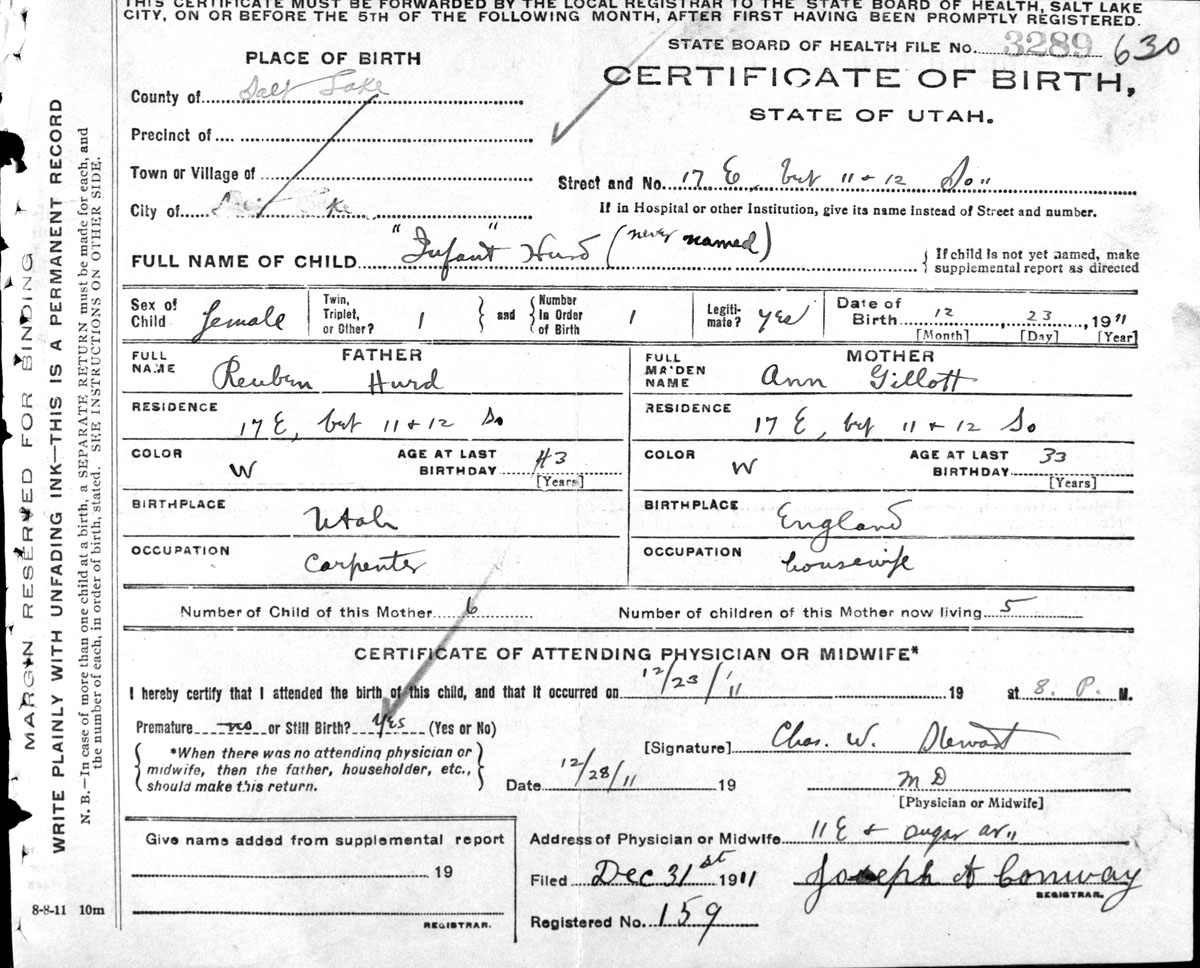 THIS CERTIFICATE MUST BE FORWARDED BY THE LOCAL REGISTRAR TO THE STATE BOARD OF HEALTH, SALT LAKE
CITY, ON OR BEFORE THE 5TH OF THE FOLLOWING MONTH, AFTER FIRST HAVING BEEN PROMPTLY REGISTERED.
STATE BOARD OF HEALTH FILE No. 3289 630
PLACE OF BIRTH
CERTIFICATE OF BIRTH,
STATE OF UTAH.
County of Salt Lake
Precinct of
Town or Village of
Street and No. 17 E, bet 11 & 12 So"
City of Lake
If in Hospital or other Institution, give its name instead of Street and number.
FULL NAME OF CHILD "Infant" Hurd (never named)
{ If child is not yet named, make
supplemental report as directed
Sex of Child female
Twin, Triplet, or Other? 1
and
Number In Order of Birth 1
Legiti-mate? yes
Date of Birth 12 23, 1911
[Month] [Day] [Year]
FATHER
FULL NAME Reuben Hurd
MOTHER
FULL MAIDEN NAME Ann Gillott
RESIDENCE 17 E, bet 11 & 12 So
RESIDENCE 17 E, bet 11 & 12 So
COLOR W AGE AT LAST BIRTHDAY 43 [Years]
COLOR W AGE AT LAST BIRTHDAY 33 [Years]
BIRTHPLACE Utah
BIRTHPLACE England
OCCUPATION Carpenter
OCCUPATION housewife
Number of Child of this Mother 6 Number of children of this Mother now living 5
CERTIFICATE OF ATTENDING PHYSICIAN OR MIDWIFE*
I hereby certify that I attended the birth of this child, and that it occurred on 12/23/'11 19 at 8. P. M.
Premature no or Still Birth? yes (Yes or No)
*When there was no attending physician or
midwife, then the father, householder, etc.,
should make this return.
[Signature] Chas. W. Stewart
Date 12/28/11 19 M D
[Physician or Midwife]
Give name added from supplemental report
19
REGISTRAR.
8-8-11 10m
Address of Physician or Midwife 11 E & Sugar av"
Filed Dec 31st 1911 Joseph A Conway
REGISTRAR.
Registered No. 159
MARGIN RESERVED FOR BINDING
WRITE PLAINLY WITH UNFADING INK—THIS IS A PERMANENT RECORD
N. B.—In case of more than one child at a birth, a SEPARATE RETURN must be made for each, and
the number of each, in order of birth, stated. SEE INSTRUCTIONS ON OTHER SIDE.